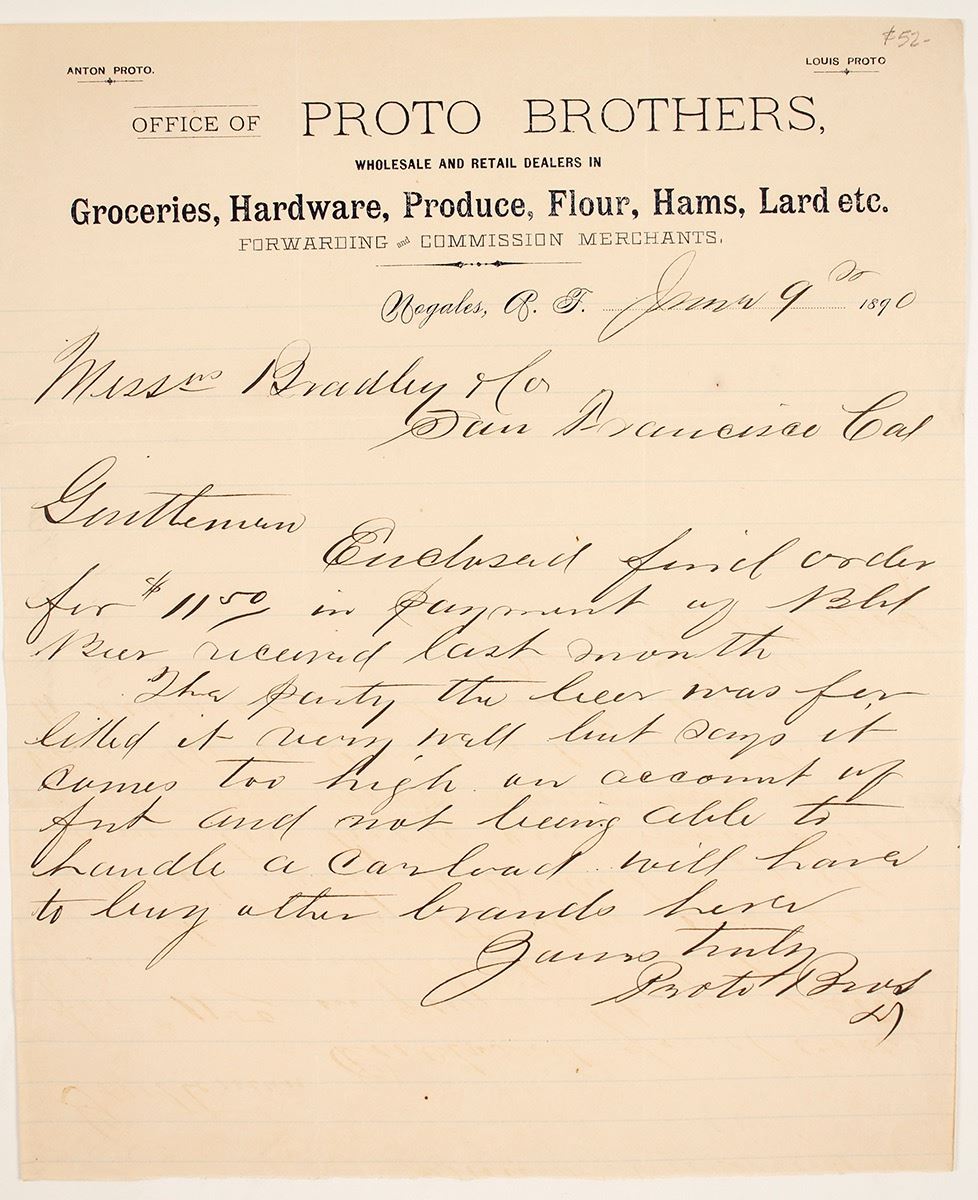 ¢52-
ANTON PROTO.
LOUIS PROTO
OFFICE OF PROTO BROTHERS,
WHOLESALE AND RETAIL DEALERS IN
Groceries, Hardware, Produce, Flour, Hams, Lard etc.
FORWARDING and COMMISSION MERCHANTS.
Nogales, A. T. 9 1890
Messrs Bradley & Co
San Francisco Cal
Gentlemen
Enclosed find order
for $11 50 in payment of Bbl
Beer received last month
The party the beer was for
liked it very well but says it
comes too high on account of
frt and not being able to
handle a carload will have
to buy other brands here
Yours truly
Proto Bros